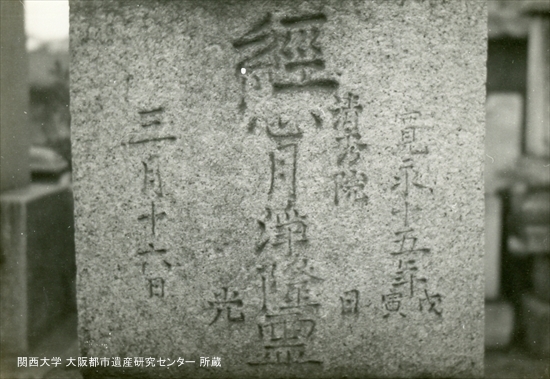 寛永十五年戊寅
清春院 日
經
心月浄隆霊
光
三月十六日
関西大学 大阪都市遺産研究センター 所蔵